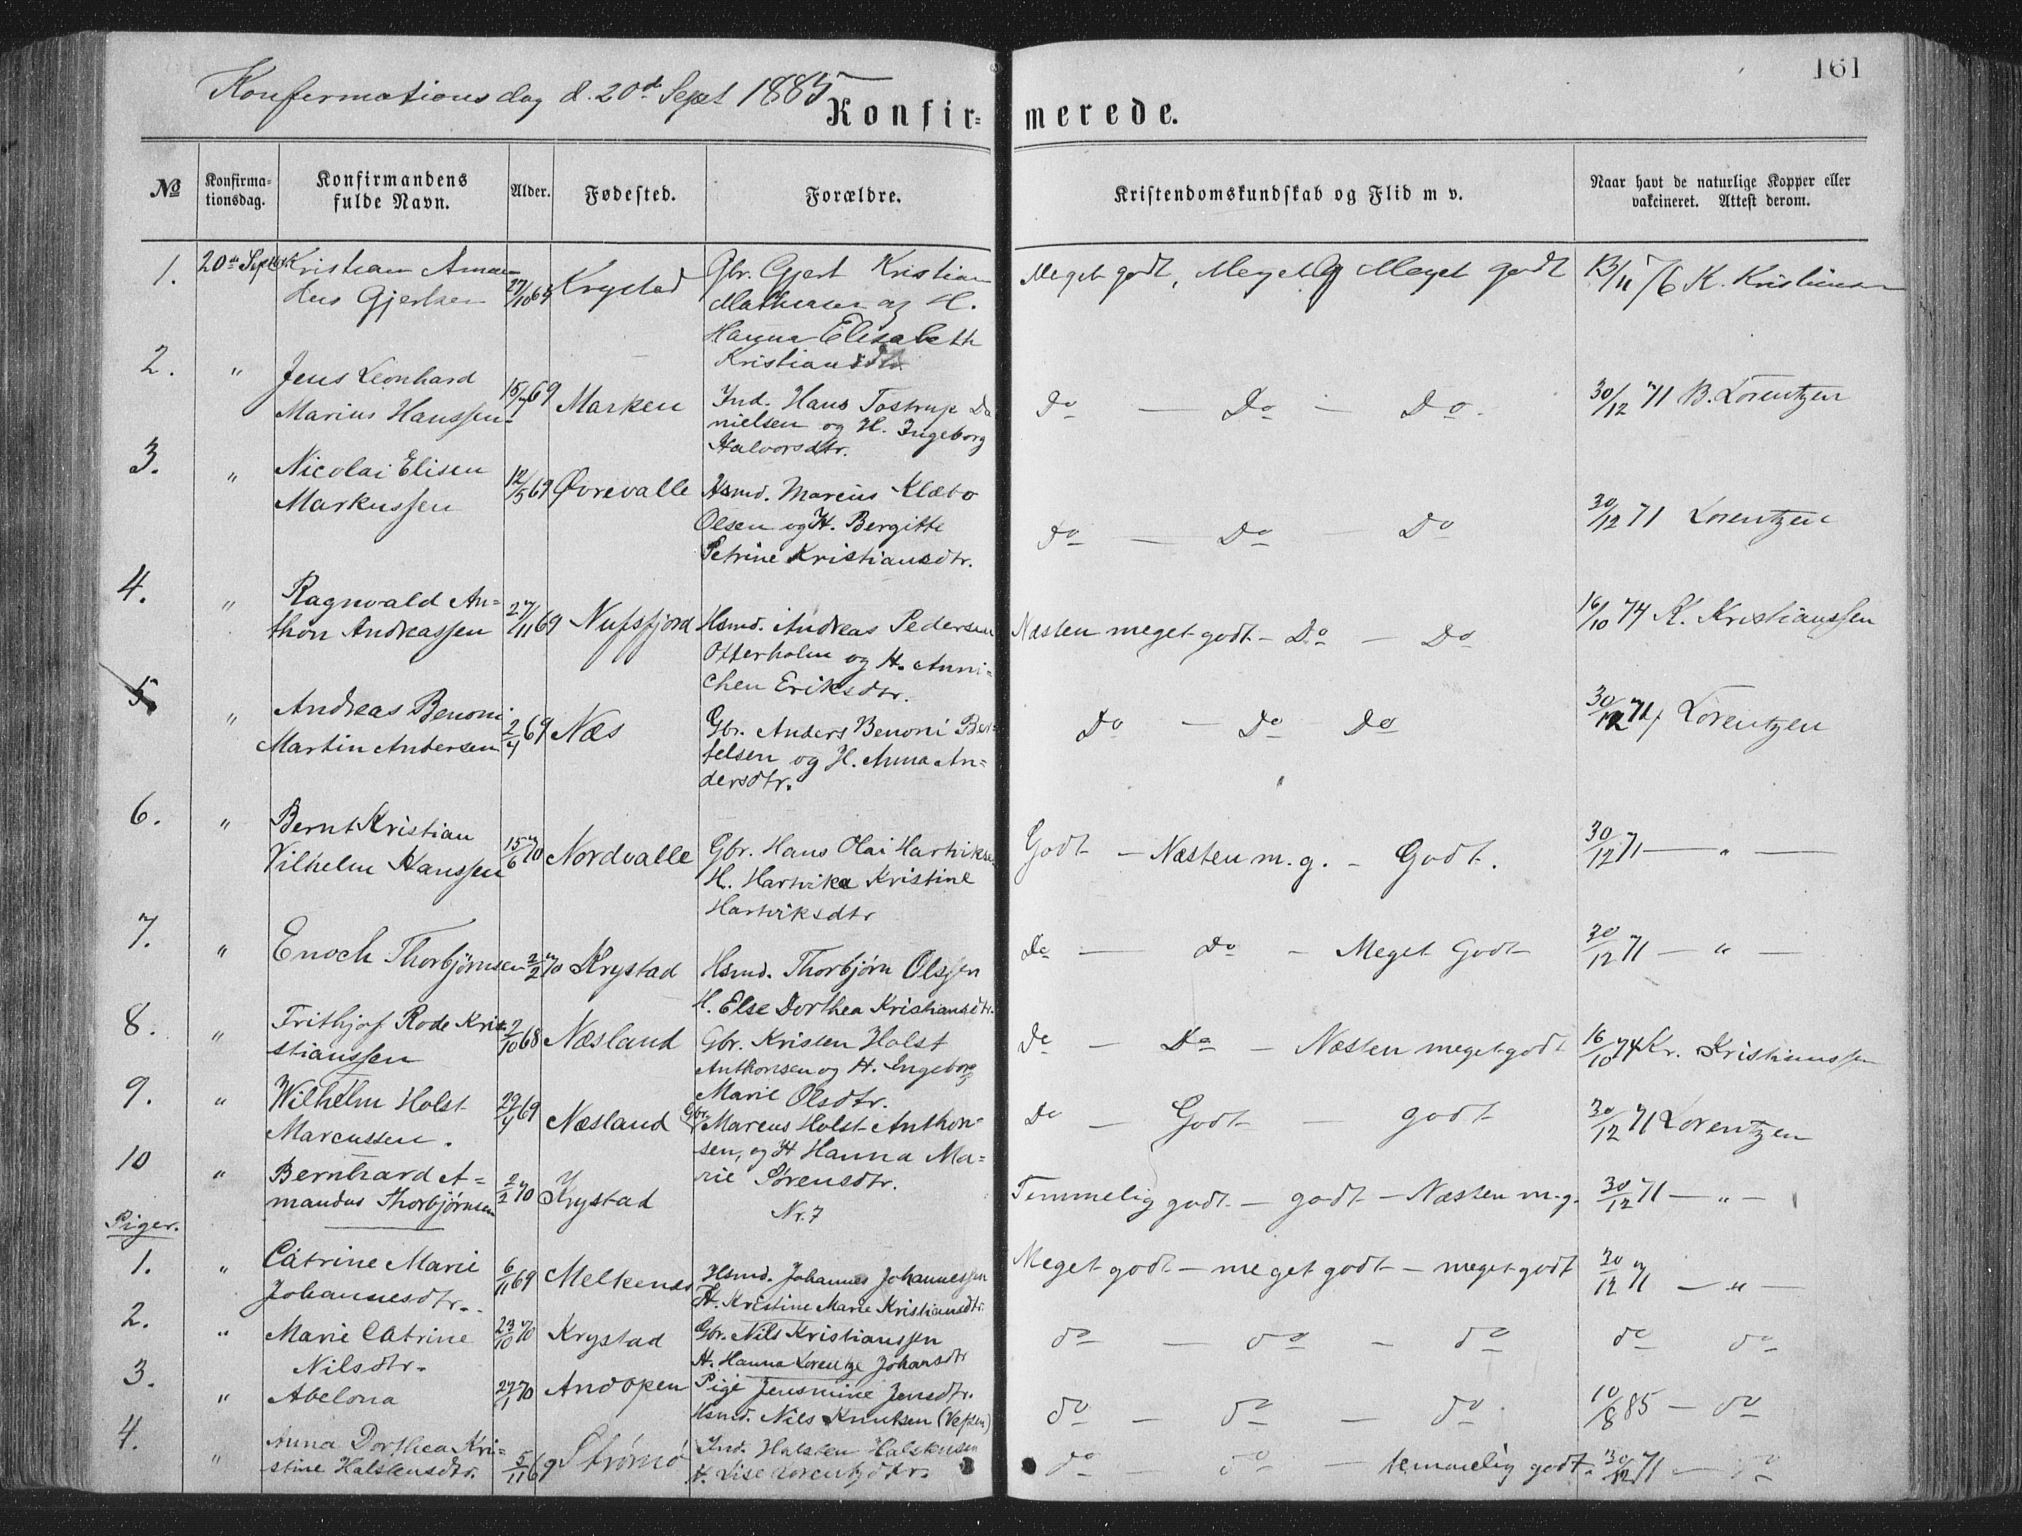 161
Konfirmationsdag d. 20de Sept 1885
Konfir- merede.
No
Konfirma-
tionsdag.
Konfirmandens
fulde Navn.
Alder.
Fødested.
Forældre.
Kristendomskundskab og Flid m v.
Naar havt de naturlige Kopper eller
vakcineret. Attest derom.
1. 20de Septbr Kristian Aman- 27/10 65 Krystad Gbr. Gjert Kristian Meget godt, Meget G Meget godt 13/11 76 K. Kristiansen
dus Gjertsen Mathisen og H.
Hanna Elisabeth
Kristiansdtr.
2. " Jens Leonhard 15/7 69 Marken Ind. Hans Tostrup Da do — Do — Do. 30/12 71 B. Lorentzen
Marius Hanssen. nielsen og H. Ingeborg
Halvorsdtr.
3. " Nicolai Elisen 12/5 69 Øvrevalle Hsmd. Marcus Klæbo do — Do — Do 30/12 71 Lorentzen
Markussen Olsen og H. Bergitte
Petrine Kristiansdtr.
4. " Ragnvald An- 27/11 69 Nufsfjord Hsmd. Andreas Pedersen Næsten meget godt - Do — Do 16/10 74 K. Kristianssen
thon Andreassen Otterholm og H. Anni-
chen Eriksdtr.
5 " Andreas Benoni 2/4 69 Næs Gbr. Anders Benoni Ber- Do — Do — Do 30/12 71 Lorentzen
Martin Andersen telsen og H. Anna An-
dersdtr.
6. " Bernt Kristian 15/6 70 Nordvalle Gbr. Hans Olai Hartviksen Godt — Næsten m. g. - Godt. 30/12 71 — " —
Vilhelm Hanssen H. Hartvika Kristine
Hartviksdtr
7. " Enoch Thorbjørnsen 2/2 70 Krystad Hsmd. Thorbjørn Olssen Do — Do - Meget Godt 30/12 71 — " —
H. Else Dorthea Kristiansdtr.
8. " Frithjof Rode Kri- 2/10 68 Næsland Gbr. Kristen Holst Do — Do — Næsten meget godt 16/10 74 Kr. Kristianssen
stianssen Anthonsen og H. Ingeborg
Marie Olsdtr.
9. " Wilhelm Holst 29/4 69 Næsland Gbr. Marcus Holst Anthon- Do — Godt — godt 30/12 71 Lorentzen
Marcussen. sen, og H Hanna Ma-
rie Sørensdtr.
10 " Bernhard A- 2/2 70 Krystad Nr. 7 Temmelig godt — godt — Næsten m. g. 30/12 71 — " —
mandus Thorbjørnsen
Piger.
1. " Catrine Marie 6/11 69 Melkenes Hsmd. Johannes Johannessen Meget godt — meget godt — meget godt 30/12 71 — " —
Johannesdtr. H. Kristine Marie Kristiansdtr.
2. " Marie Catrine 23/10 70 Krystad Gbr. Nils Kristianssen do — do — do do do
Nilsdtr. H. Hanna Lorentze Johansdtr
3. " Abelona 27/1 70 Andopen Pige Jensmine Jensdtr. do — do — do 10/8 85 — do
Hsmd. Nils Knutsen (Vefsen)
4. " Anna Dorthea Kri- 5/11 69 Strømø Ind. Halsten Halstensen do — do — temmelig godt. 30/12 71 — do
stine Halstensdtr. H. Lise Lorentzdtr.